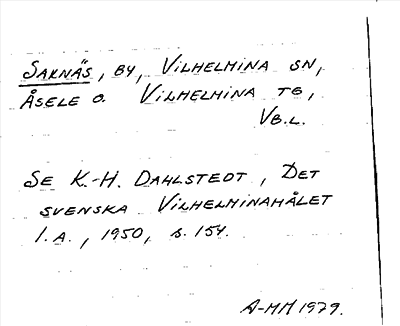 SAXNÄS, BY, VILHELMINA SN,
ÅSELE O. VILHELMINA TG,
VB.L.
SE K.-H. DAHLSTEDT, DET
SVENSKA VILHELMINAMÅLET
1.A., 1950, s. 154.
A-MM 1979.